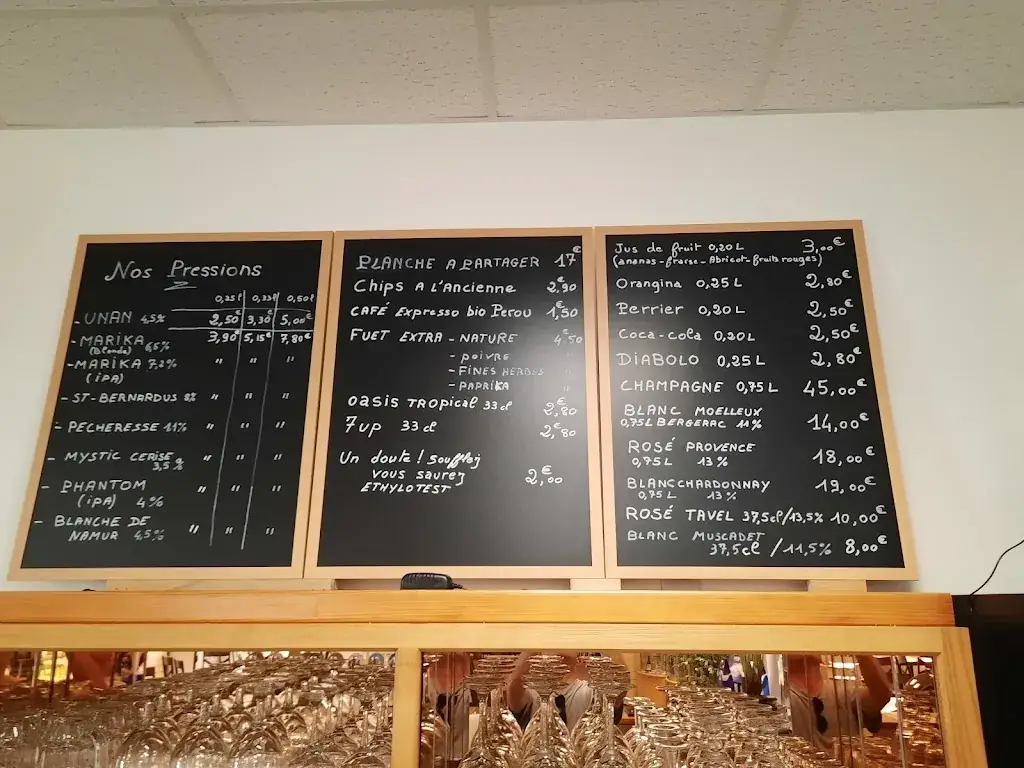 Nos Pressions
0,25l 0,33l 0,50l
- UNAN 4,5% 2,50€ 3,30€ 5,00€
- MARIKA 3,90€ 5,15€ 7,80€
(Blonde) 6,5%
- MARIKA 7,2% " " "
(IPA)
- ST-BERNARDUS 8% " " "
- PECHERESSE 11% " " "
- MYSTIC CERISE " " "
3,5%
- PHANTOM " " "
(IPA) 4%
- BLANCHE DE " " "
NAMUR 4,5%
PLANCHE A PARTAGER 17€
Chips A l'Ancienne 2,€90
CAFÉ Expresso bio Perou 1,€50
FUET EXTRA - NATURE 4€50
- POIVRE "
- FINES HERBES "
- PAPRIKA "
OASIS TROPICAL 33cl 2,€80
7up 33cl 2,€80
Un doute ! Soufflez
vous saurez 2,€00
ETHYLOTEST
Jus de fruit 0,20L 3,00€
(ananas - fraise - Abricot - fruits rouges)
Orangina 0,25L 2,80€
Perrier 0,20L 2,50€
Coca-cola 0,20L 2,50€
DIABOLO 0,25L 2,80€
CHAMPAGNE 0,75L 45,00€
BLANC MOELLEUX
0,75L BERGERAC 11% 14,00€
ROSÉ PROVENCE
0,75L 13% 18,00€
BLANC CHARDONNAY 19,00€
0,75L 13%
ROSÉ TAVEL 37,5cl/13,5% 10,00€
BLANC MUSCADET
37,5cl /11,5% 8,00€